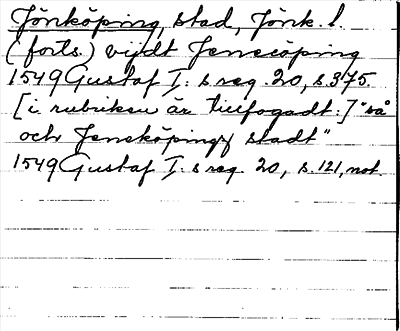 Jönköping, stad, Jönk. l.
(forts.) vijdt Jenecöping
1549 Gustaf I:s reg. 20, s. 375.
[i rubriken är tillfogadt:] "så
och Jeneköpings stadt"
1549 Gustaf I:s reg. 20, s. 121, not.